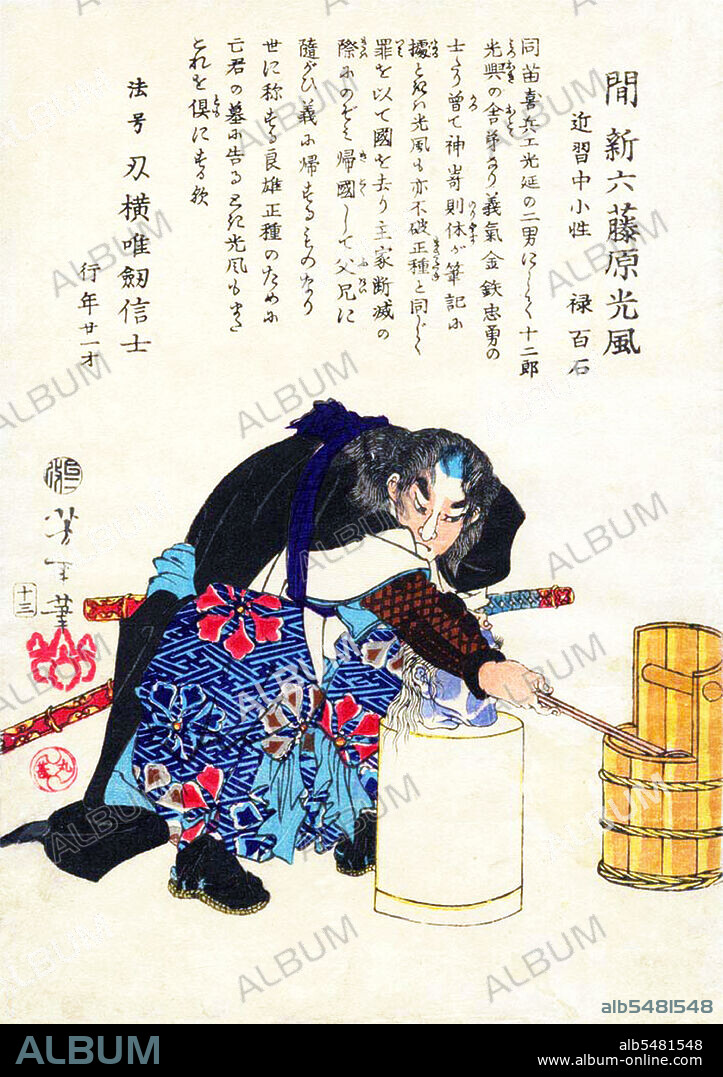 間新六藤原光風
近習中小性 禄百石
同苗喜兵エ光延の二男にして十二郎
光興の舎弟なり義氣金鉄忠勇の
士たり曽て神嵜則休が筆記に
據ときハ光風も亦不破正種と同じく
罪を以て國を去り主家断滅の
際にのぞミ帰國して父兄に
隨がひ義に帰するものなり
世に称する良雄正種のために
亡君の墓に告る
これを倶にする歟
法号 刃横唯劔信士
行年廿一才
芳年筆
十三
ALBUM
alb5481548
ALBUM
alb5481548
www.album-online.com